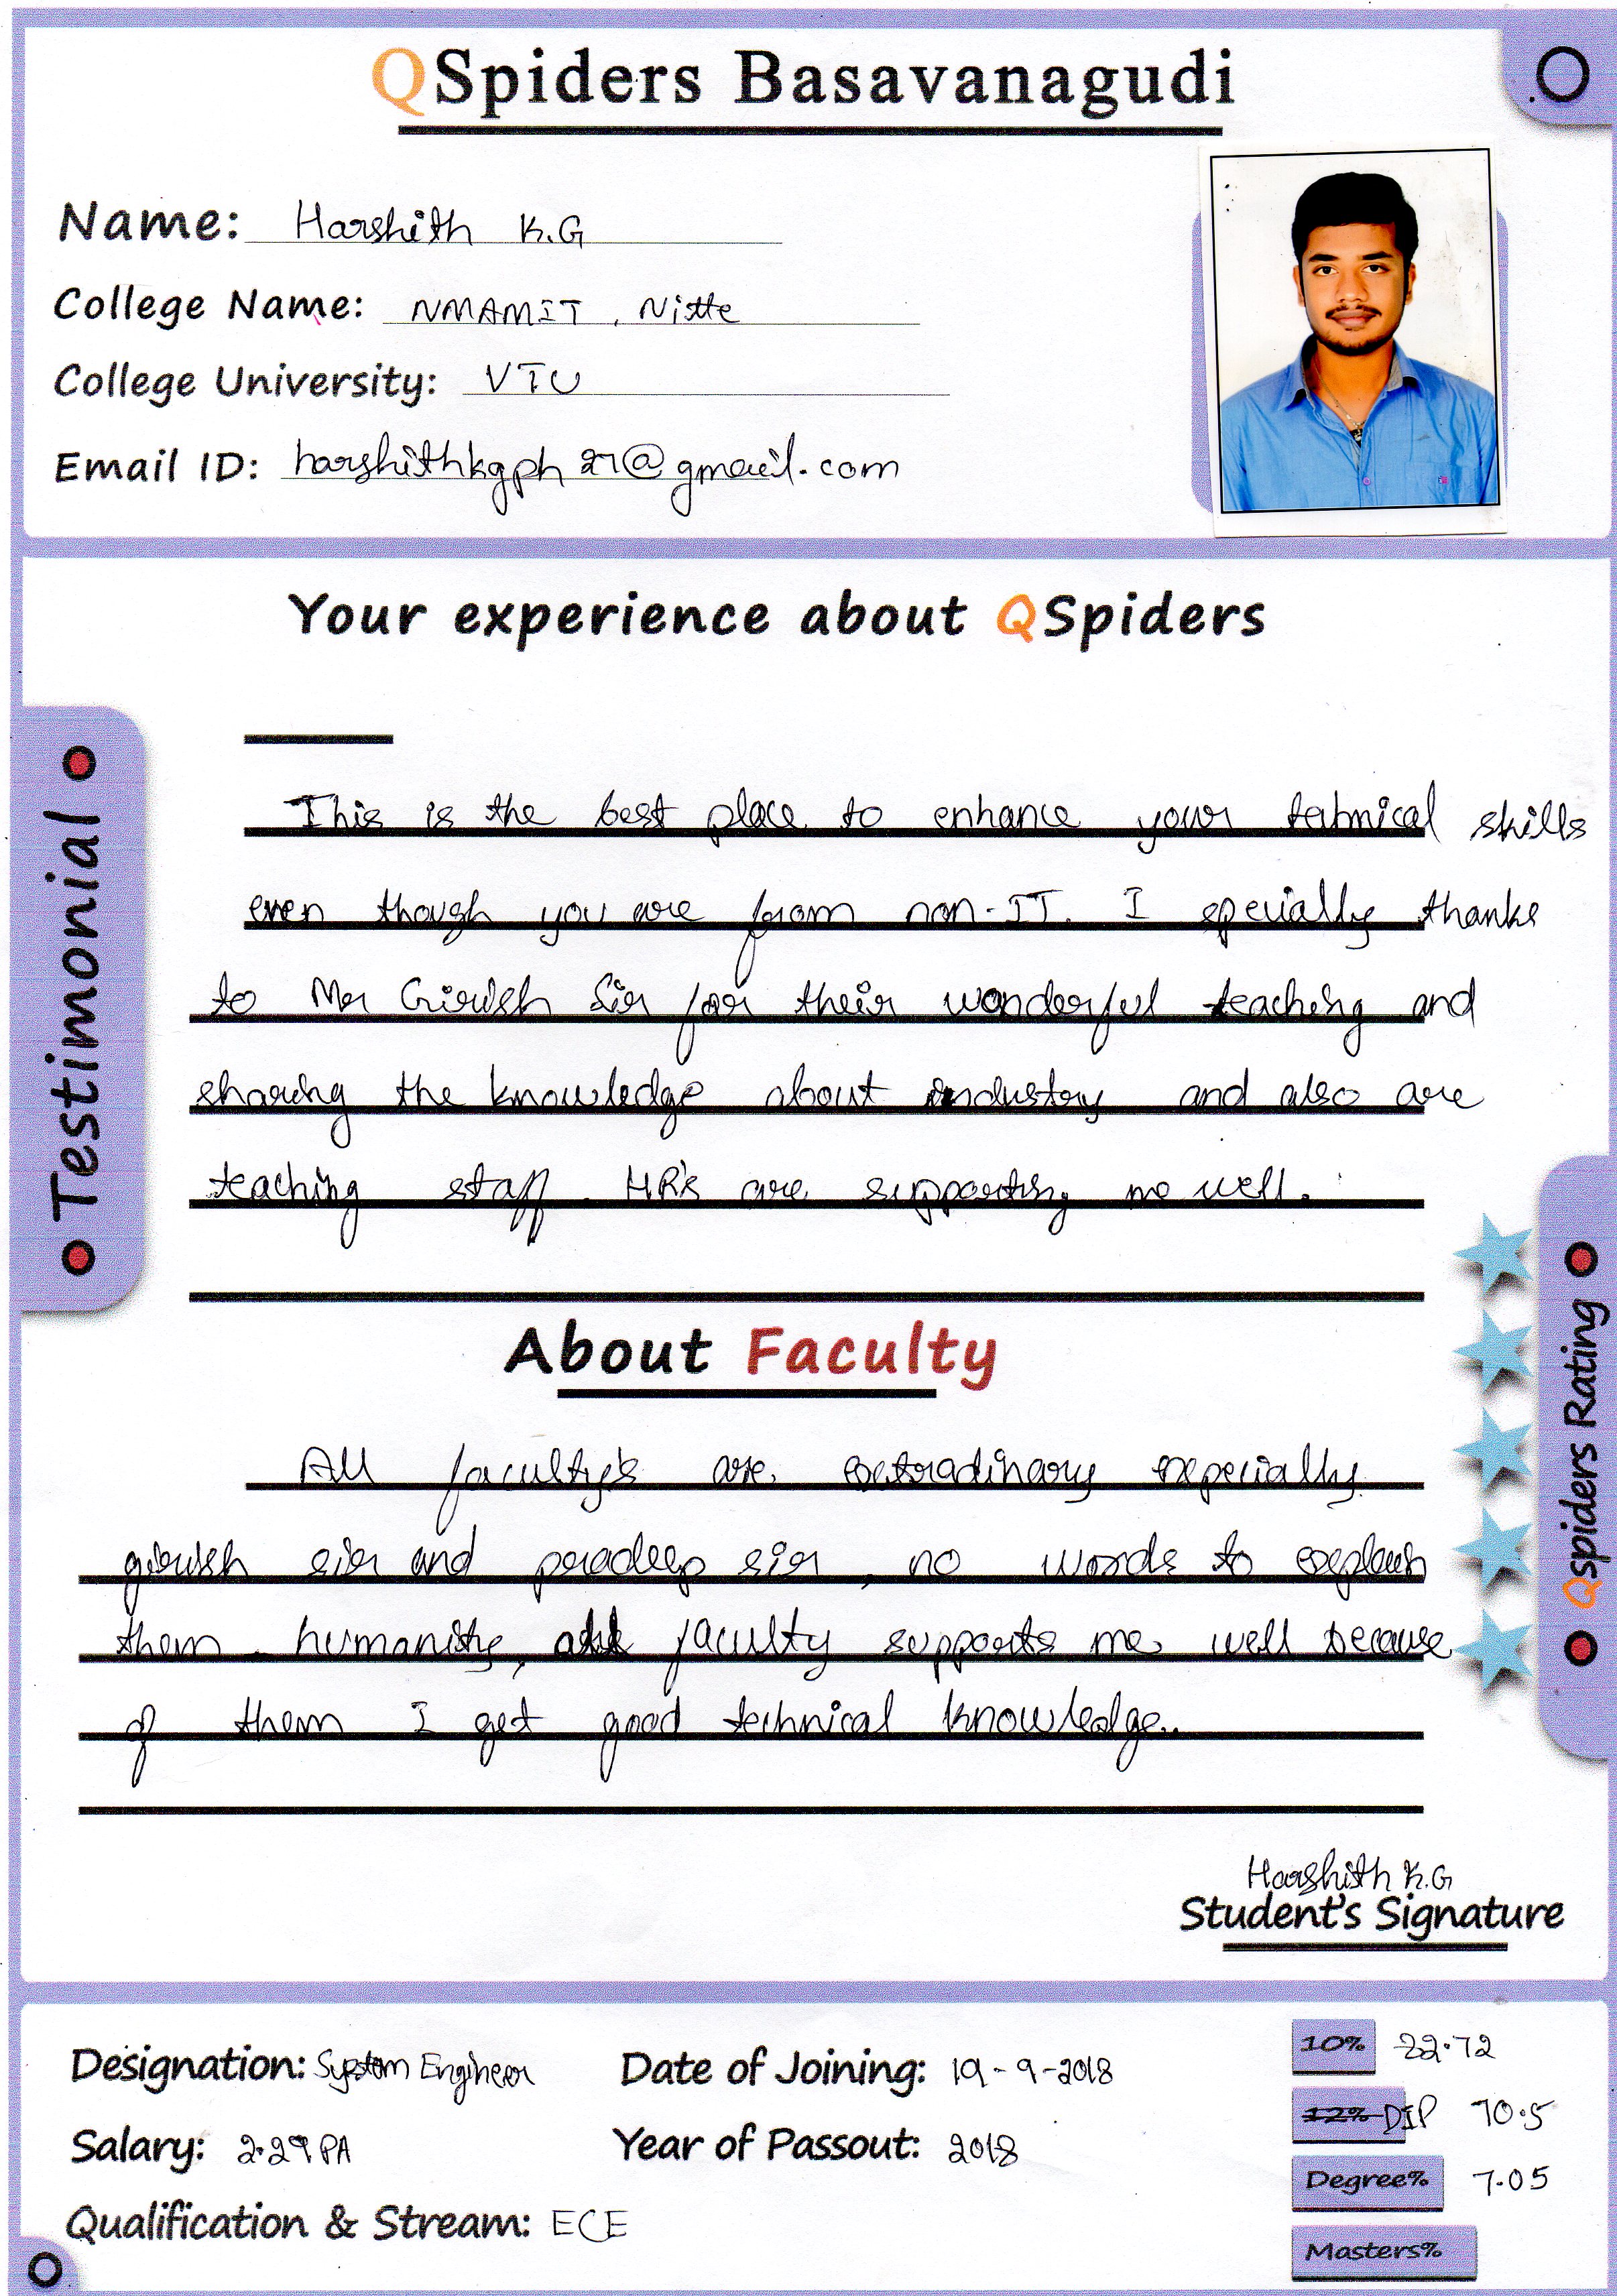 QSpiders Basavanagudi
Name: Harshith K.G
College Name: NMAMIT, Nitte
College University: VTU
Email ID: harshithkgph27@gmail.com
Your experience about QSpiders
Testimonial
This is the best place to enhance your tehnical skills
even though you are from non-IT. I specially thanks
to Mr Girish Sir for their wonderful teaching and
sharing the knowledge about industry and also are
teaching staff. HR's are supporting me well.
About Faculty
All faculty's are extradinary expecially
girish sir and pradeep sir, no words to explain
them. humanity, faculty supports me well because
of them I get good technical knowledge..
Qspiders Rating
Harshith K.G
Student's Signature
Designation: System Engineer
Date of Joining: 19-9-2018
Salary: PA
Year of Passout: 2018
Qualification & Stream: ECE
10%
12% DIP 70.5
Degree% 7.05
Masters%